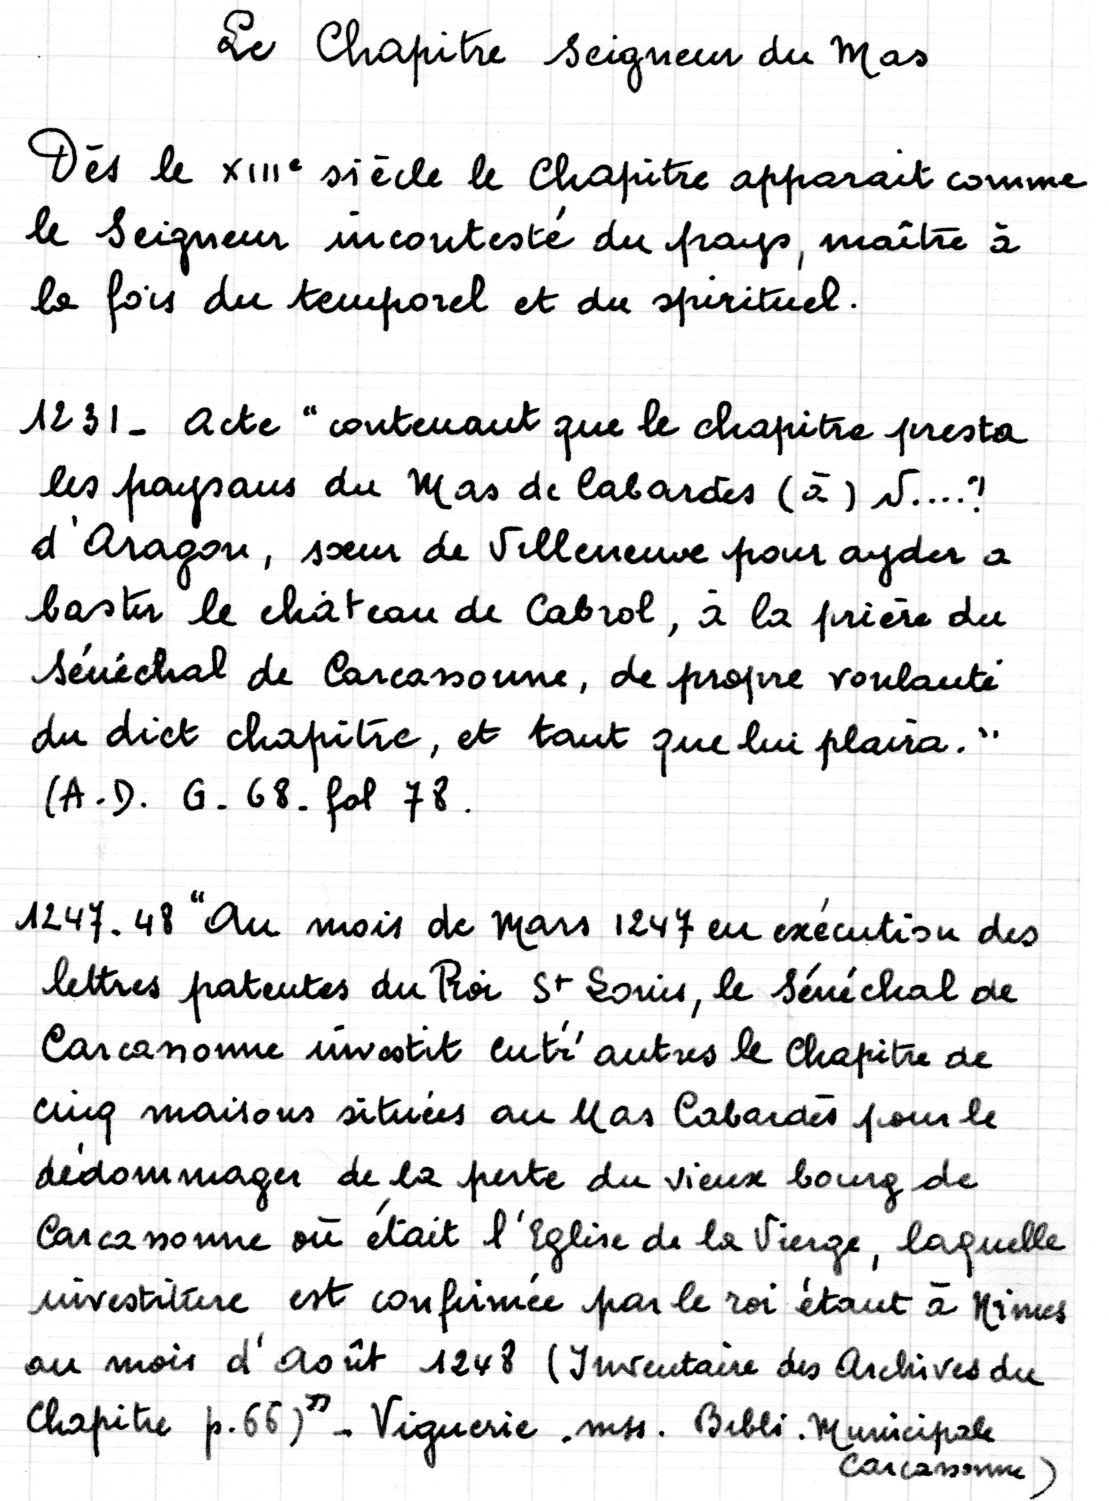 Le Chapitre Seigneur du Mas
Dès le XIIIe siècle le Chapitre apparait comme
le Seigneur incontesté du pays, maître à
la fois du temporel et du spirituel.
1231_ Acte "contenant que le chapitre presta
les paysans du Mas de Cabardès (à) V....?
d'Aragon, sœur de Villeneuve pour ayder a
bastir le château de Cabrol, à la prière du
Sénéchal de Carcassonne, de propre voulanté
du dict chapitre, et tant que lui plaira."
(A.D. G. 68. fol 78.
1247.48 "Au mois de Mars 1247 en exécution des
lettres patentes du Roi St Louis, le Sénéchal de
Carcassonne investit entr'autres le Chapitre de
cinq maisons situées au Mas Cabardès pour le
dédommager de la perte du vieux bourg de
Carcassonne où était l'Eglise de la Vierge, laquelle
investiture est confirmée par le roi étant à Nimes
au mois d'Août 1248 (Inventaire des Archives du
Chapitre p.66)" _ Viguerie . mss. Bibli. Municipale
Carcassonne)